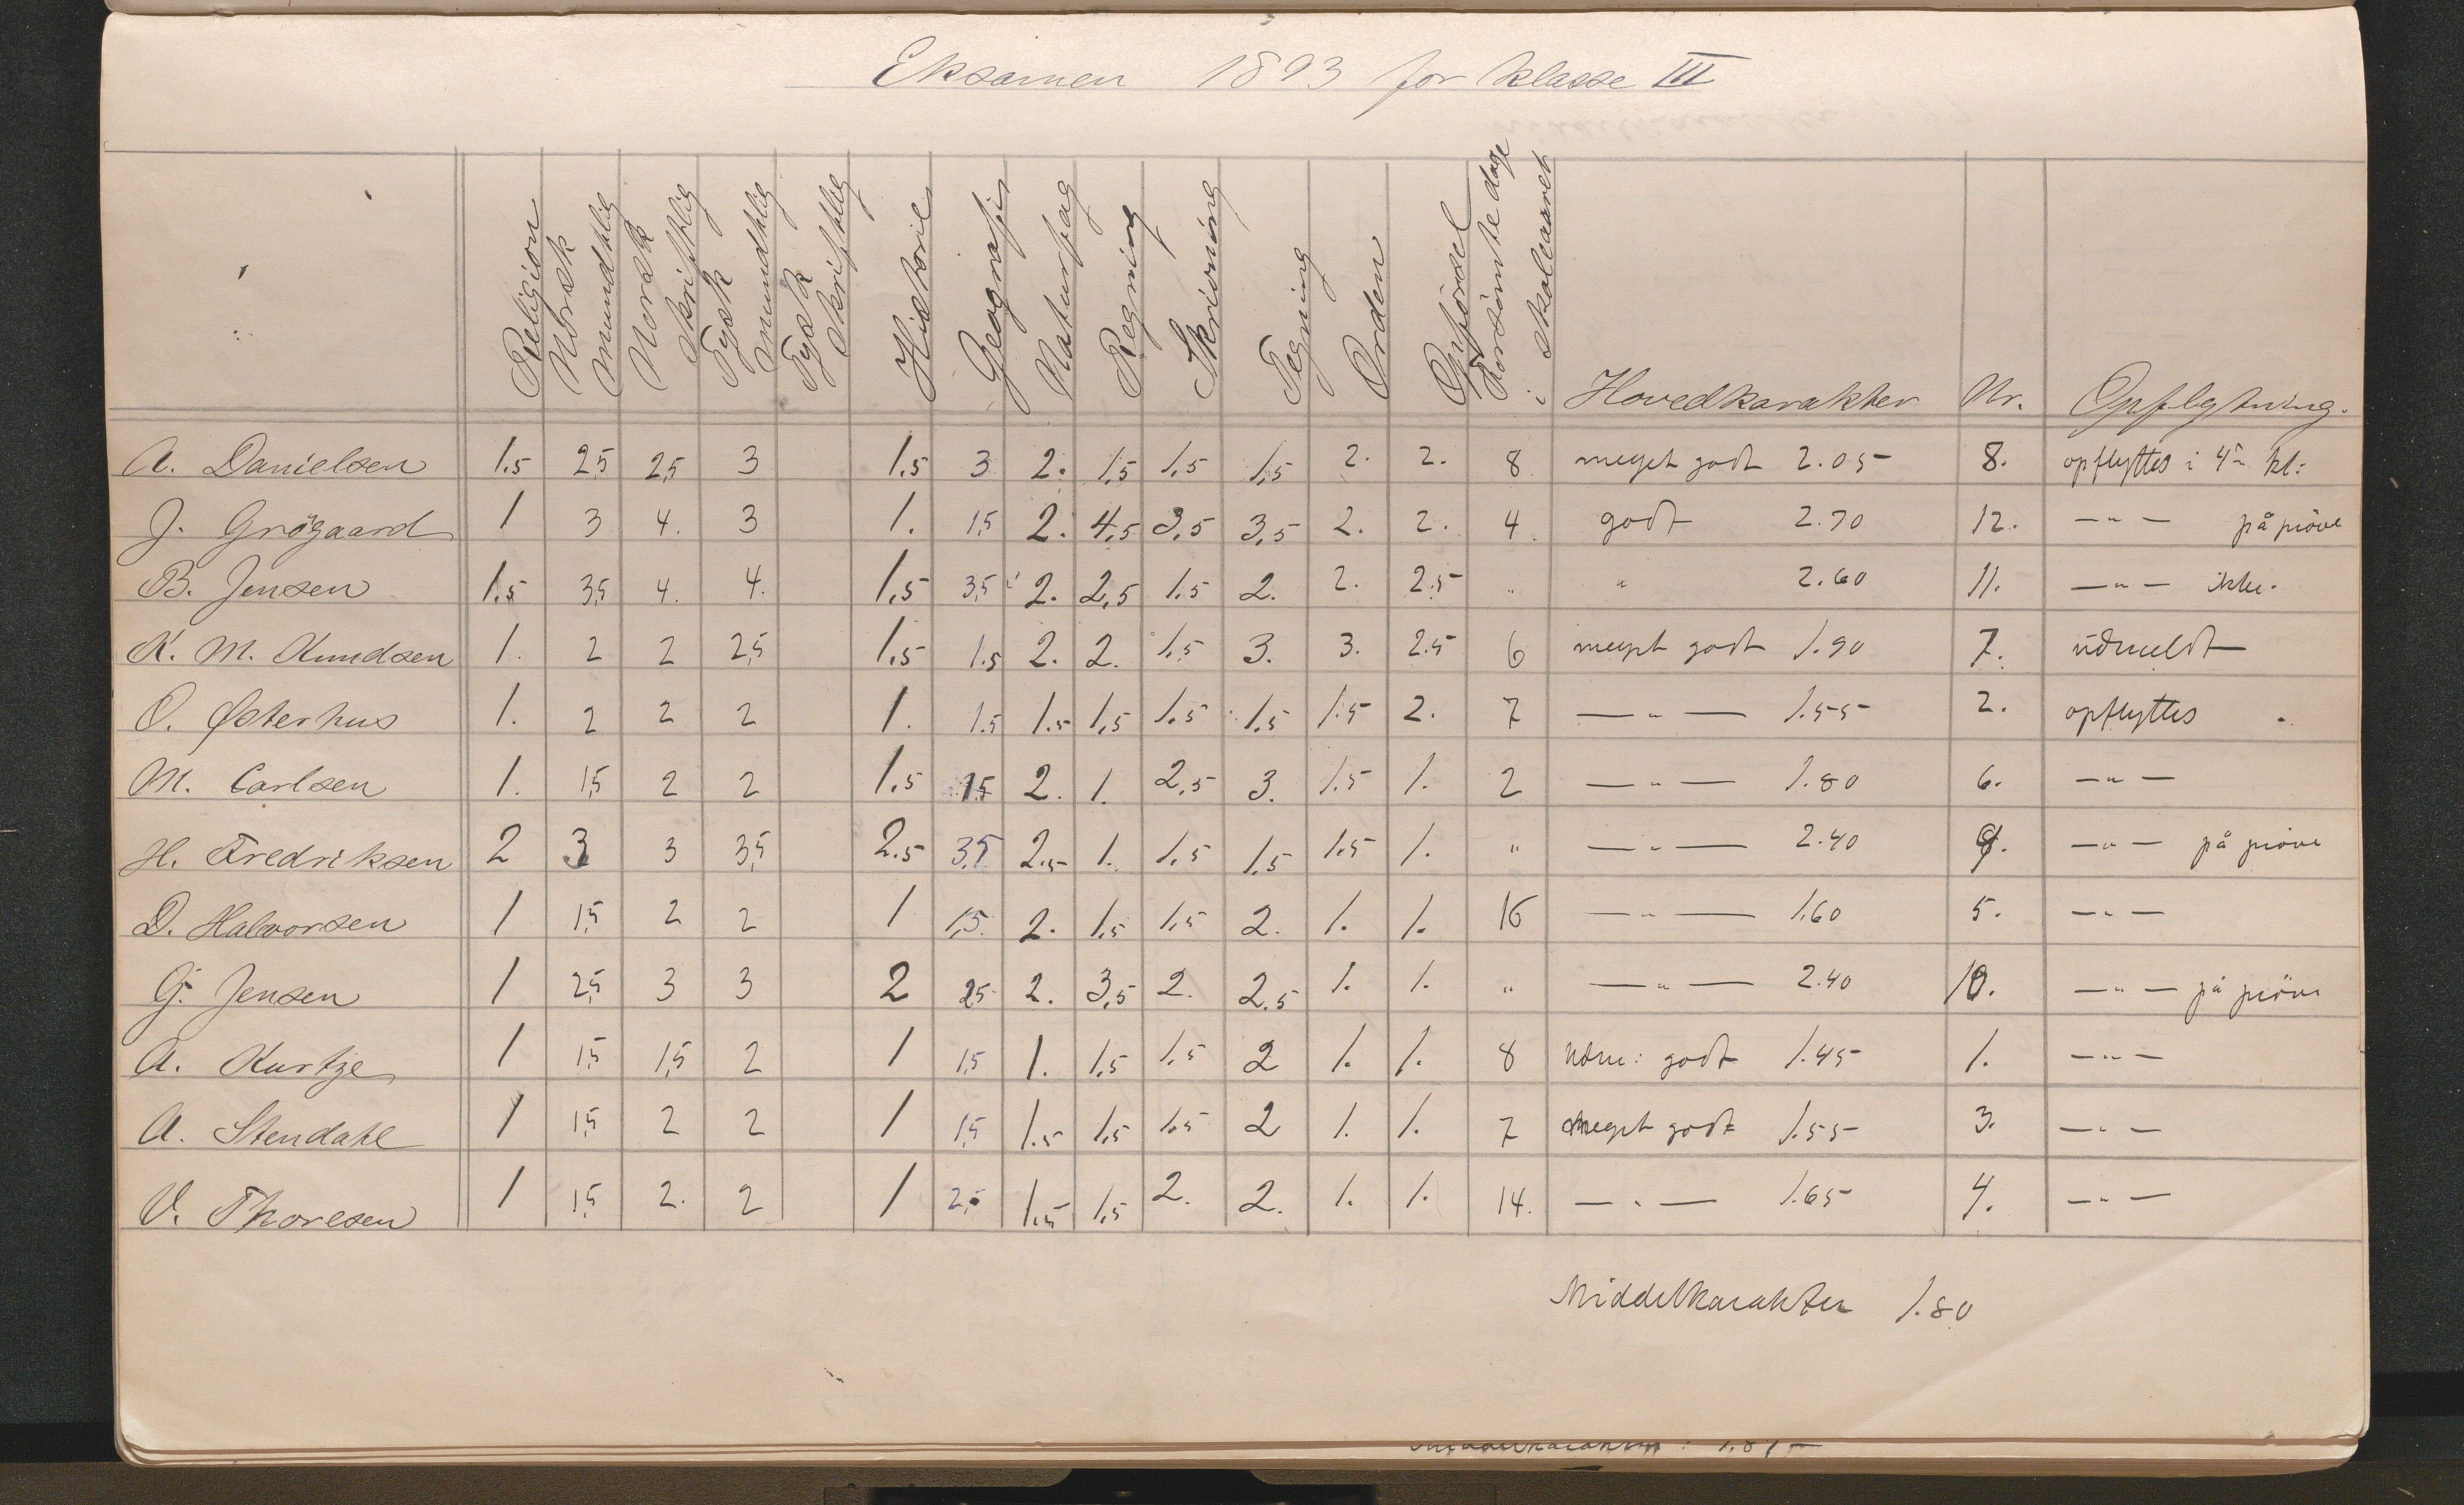 Eksamen 1893 for klasse III
Religion
Norsk mundtlig
Norsk skriftlig
Tysk mundtlig
Tysk skriftlig
Historie
Geografi
Naturfag
Regning
Skrivning
Tegning
Orden
Opförsel
Forsömte dage i skoleaaret
Hovedkarakter
Nr.
Opflytning.
A. Danielsen 1.5 2,5 2,5 3 1.5 3 2. 1,5 1.5 1,5 2. 2. 8. meget godt 2.05 8. opflyttes i 4de kl:
J. Grögaard 1 3 4. 3 1. 1,5 2. 4,5 3,5 3,5 2. 2. 4. godt 2.70 12. —"— på pröve
B. Jensen 1.5 3,5 4. 4. 1,5 3,5 2. 2,5 1.5 2. 2. 2.5 " " 2.60 11. —"— ikke.
K. M. Knudsen 1. 2 2 2,5 1,5 1.5 2. 2. 1.5 3. 3. 2.5 6 meget godt 1.90 7. udmeldt
O. Østerhus 1. 2 2 2 1. 1.5 1.5 1,5 1.5 1.5 1.5 2. 7 —"— 1.55 2. opflyttes
M. Carlsen 1. 1,5 2 2 1.5 1,5 2. 1. 2.5 3. 1.5 1. 2 —"— 1.80 6. —"—
H. Fredriksen 2 3 3 3,5 2.5 3,5 2.5 1. 1.5 1.5 1.5 1. " —"— 2.40 9. —"— på pröve
D. Halvorsen 1 1,5 2 2 1 1,5. 2. 1.5 1.5 2. 1. 1. 16 —"— 1.60 5. —"—
G. Jensen 1 2,5 3 3 2 2,5 2. 3,5 2. 2.5 1. 1. " —"— 2.40 10. —"— på pröve
A. Kurtze 1 1,5 1,5 2 1 1,5 1. 1.5 1.5 2 1. 1. 8 Udm: godt 1.45 1. —"—
A. Stendahl 1 1,5 2 2 1 1,5 1.5 1.5 1.5 2 1. 1. 7 meget godt 1.55 3. —"—
V. Thoresen 1 1,5 2. 2 1 2,5 1.5 1,5 2. 2. 1. 1. 14. —"— 1.65 4. —"—
Middelkarakter 1.80